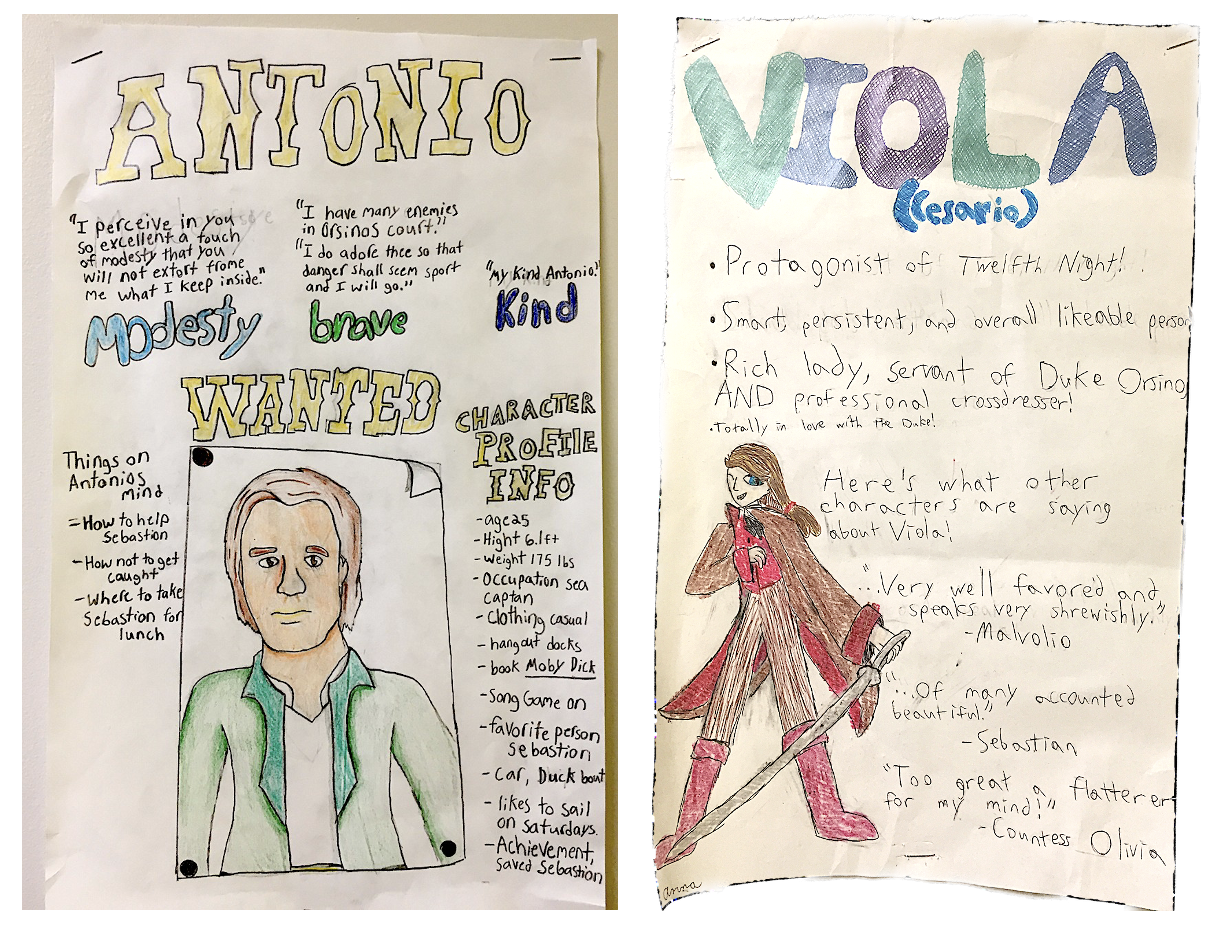 ANTONIO
"I perceive in you
so excellent a touch
of modesty that you
will not extort frome
me what I keep inside."
Modesty
"I have many enemies
in Orsinos court."
"I do adore thee so that
danger shall seem sport
and I will go."
brave
"my Kind Antonio!"
Kind
WANTED
Things on
Antonios
mind
-How to help
Sebastion
-How not to get
caught
-Where to take
Sebastion for
lunch
CHARACTER
PROFILE
INFO
-age 25
-Hight 6.1ft
-Weight 175 lbs
-Occupation sea
captan
-Clothing casual
-hangout docks
-book Moby Dick
-Song Game on
-favorite person
Sebastion
-Car, Duck boat
-likes to sail
on saturdays.
-Achievement,
saved Sebastion
VIOLA
(Cesario)
•Protagonist of Twelfth Night!
•Smart, persistent, and overall likeable person
•Rich lady, servant of Duke Orsino
AND professional crossdresser!
•Totally in love with the Duke!
Here's what other
characters are saying
about Viola!
"...Very well favored and
speaks very shrewishly."
-Malvolio
"...Of many accounted
beautiful."
-Sebastian
"Too great a flatterer
for my mind!"
-Countess Olivia
anna